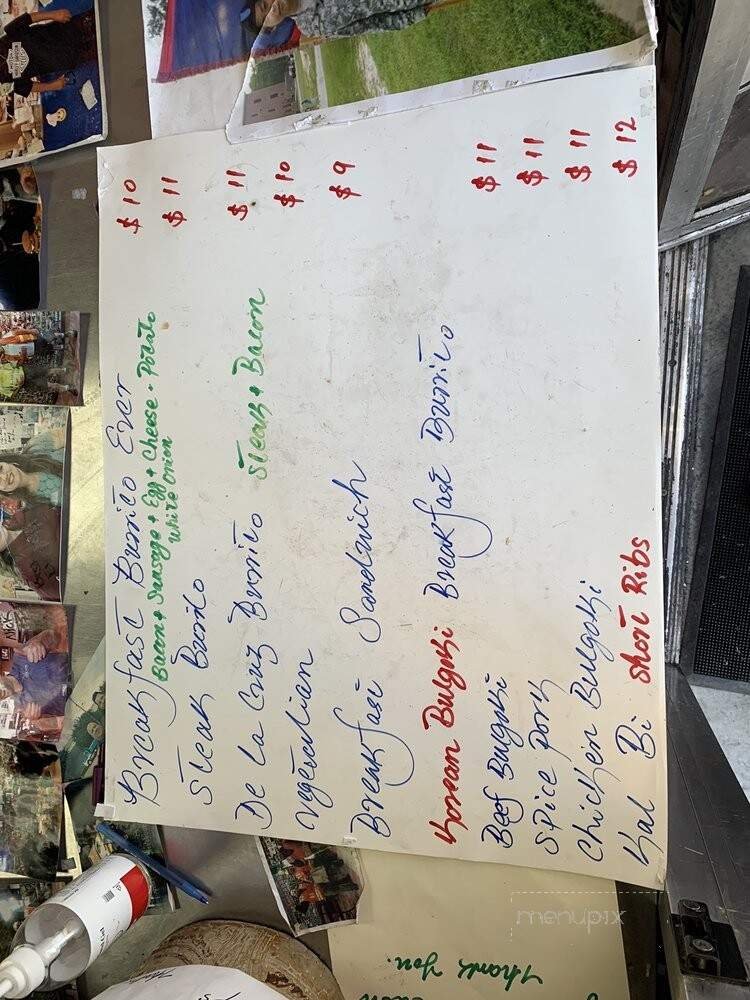 Breakfast Burrito Ever $10
Bacon + Sausage + Egg + Cheese + Potato
White onion
Steak Burrito $11
De La Cruz Burrito Steak + Bacon $11
Vegetarian $10
Breakfast Sandwich $9
Korean Bulgoki Breakfast Burrito
Beef Bulgoki $11
Spice pork $11
Chicken Bulgoki $11
Kal Bi Short Ribs $12
Thank You.
menupix